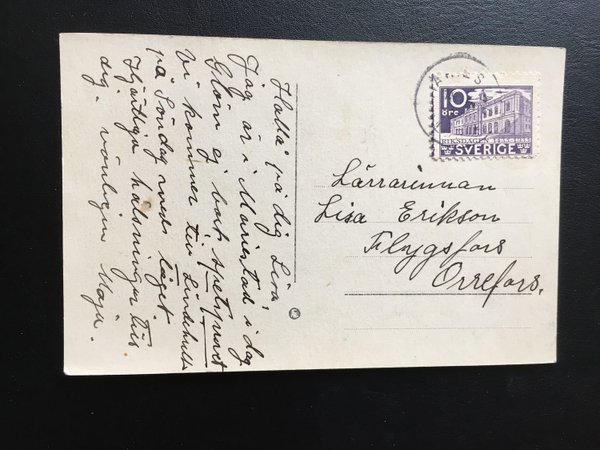 Hallå på dig Lisa!
Jag är i Mariestad i dag
Glöm ej bort
Vi kommer till Lindehult
på Söndag med tåget.
Hjärtliga hälsningar till
dig. vänligen Maja.
10
öre
RIKSDAGEN 1435-1935
SVERIGE
Lärarinnan
Lisa Erikson
Flygsfors
Orrefors.